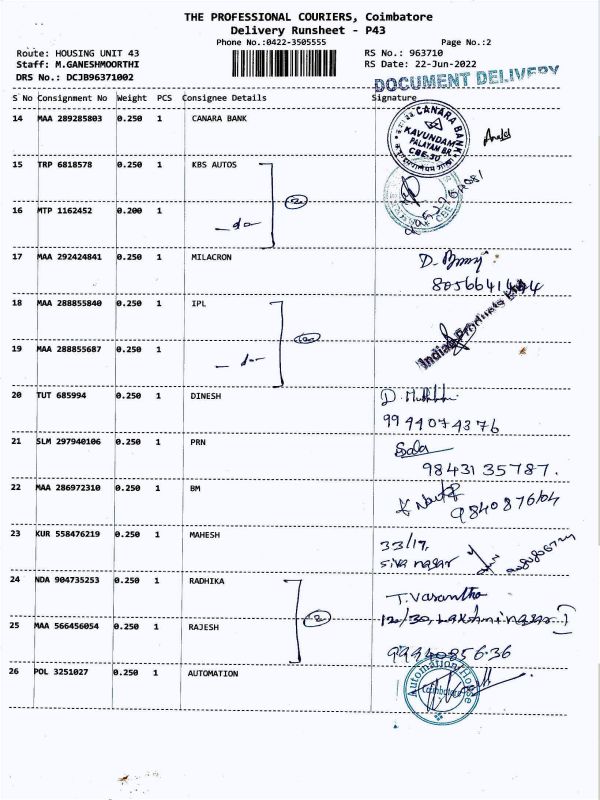 THE PROFESSIONAL COURIERS, Coimbatore
Delivery Runsheet - P43
Phone No.:0422-3505555 Page No.:2
Route: HOUSING UNIT 43 RS No.: 963710
Staff: M.GANESHMOORTHI RS Date: 22-Jun-2022
DRS No.: DCJB96371002
DOCUMENT DELIVERY
S No Consignment No Weight PCS Consignee Details Signature
14 MAA 289285803 0.250 1 CANARA BANK
CANARA BANK
KAVUNDAM
PALAYAM BR
CBE-30
15 TRP 6818578 0.250 1 KBS AUTOS
2
16 MTP 1162452 0.200 1 -do-
17 MAA 292424841 0.250 1 MILACRON
18 MAA 288855840 0.250 1 IPL
19 MAA 288855687 0.250 1 -do-
20 TUT 685994 0.250 1 DINESH
9994074376
21 SLM 297940106 0.250 1 PRN
Sala
9843135787.
22 MAA 286972310 0.250 1 BM
23 KUR 558476219 0.250 1 MAHESH
33/19,
siva nagar
24 NDA 904735253 0.250 1 RADHIKA
T. Vasantha
12/30, Lakshmi nagar
2
25 MAA 566456054 0.250 1 RAJESH
9994085636
26 POL 3251027 0.250 1 AUTOMATION
Automation House
Coimbatore